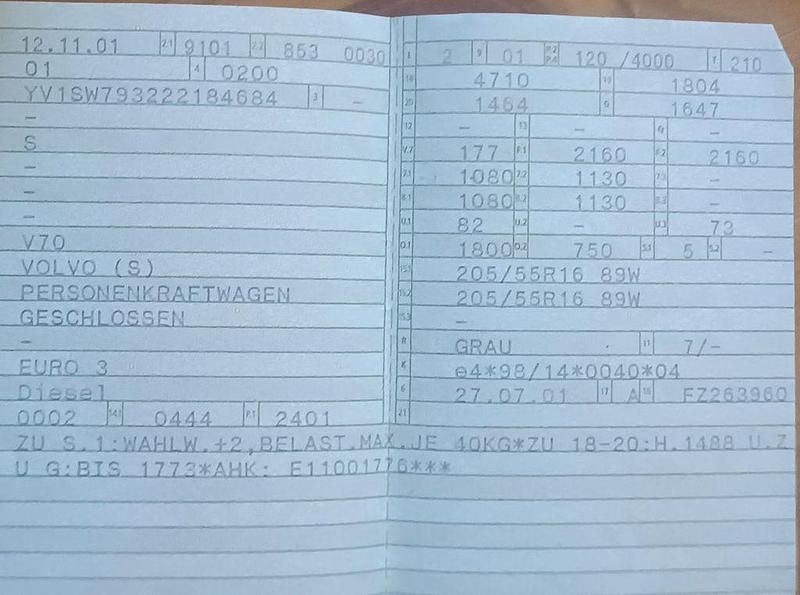 12.11.01 2.1 9101 2.2 853 0030
01 4 0200
YV1SW793222184684 3 -
-
S
-
-
-
V70
VOLVO (S)
PERSONENKRAFTWAGEN
GESCHLOSSEN
-
EURO 3
Diesel
0002 14.1 0444 P.1 2401
L 2 9 01 P.2 P.4 120 /4000 T 210
18 4710 19 1804
20 1464 G 1647
12 - 13 - Q -
V.7 177 F.1 2160 F.2 2160
7.1 1080 7.2 1130 7.3 -
8.1 1080 8.2 1130 8.3 -
U.1 82 U.2 - U.3 73
O.1 1800 O.2 750 S.1 5 S.2 -
15.1 205/55R16 89W
15.2 205/55R16 89W
15.3 -
R GRAU 11 7/-
K e4*98/14*0040*04
6 27.07.01 17 A 16 FZ263960
21
ZU S.1:WAHLW.+2,BELAST.MAX.JE 40KG*ZU 18-20:H.1488 U.Z
U G:BIS 1773*AHK: E11001776***